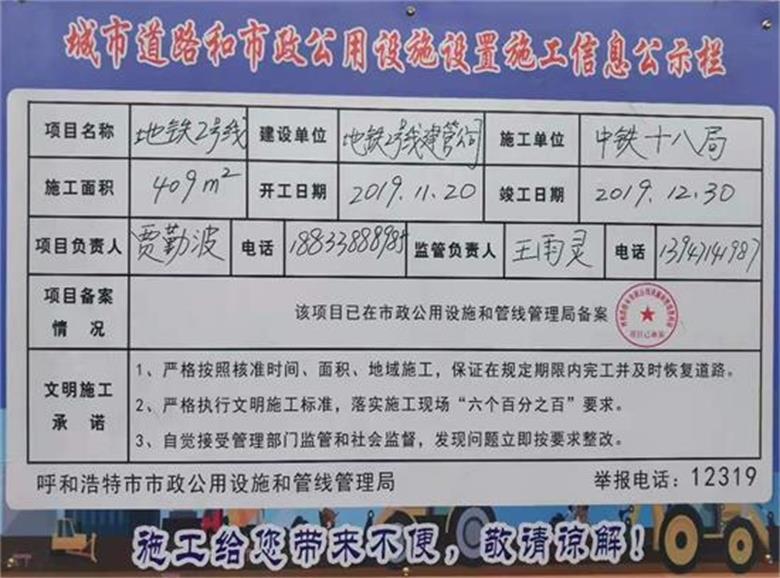 城市道路和市政公用设施设置施工信息公示栏
项目名称 地铁2号线 建设单位 地铁2号线建管公司 施工单位 中铁十八局
施工面积 409m² 开工日期 2019.11.20 竣工日期 2019.12.30
项目负责人 贾勤波 电话 18833888985 监管负责人 王雨灵 电话 13947141987
项目备案
情况 该项目已在市政公用设施和管线管理局备案
文明施工
承诺
1、严格按照核准时间、面积、地域施工，保证在规定期限内完工并及时恢复道路。
2、严格执行文明施工标准，落实施工现场“六个百分之百”要求。
3、自觉接受管理部门监管和社会监督，发现问题立即按要求整改。
呼和浩特市市政公用设施和管线管理局 举报电话：12319
施工给您带来不便，敬请谅解！